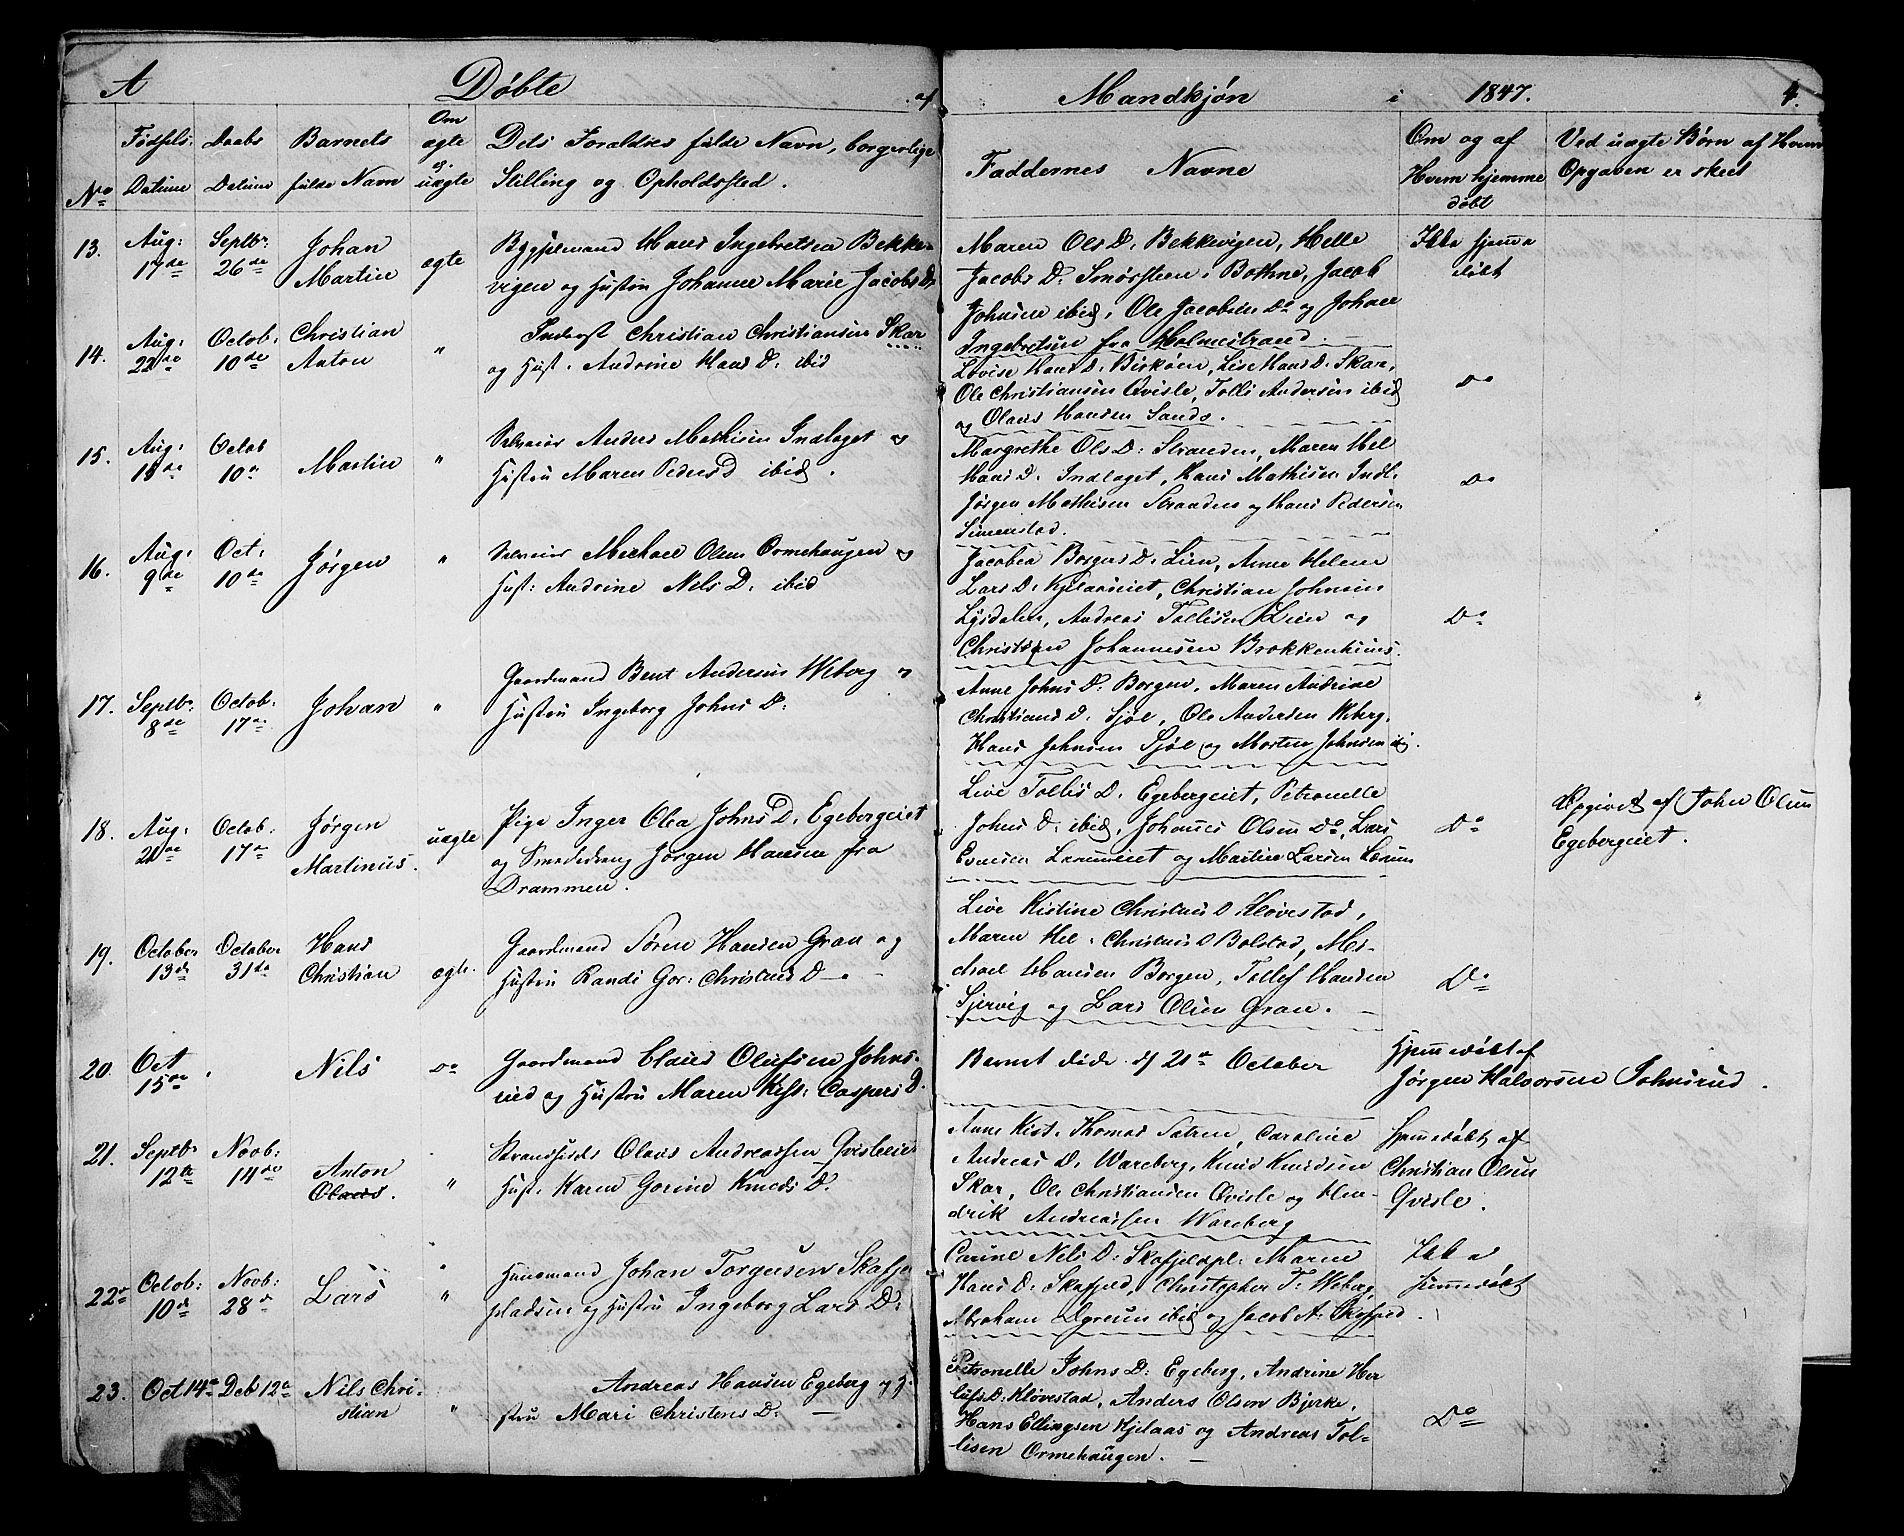 A Døbte af Mandkjøn i 1847. 4.
No Fødsels Datum Daabs Datum Barnets fulde Navn Om ægte el. uægte Dets Forældres fulde Navn, borgerlige Stilling og Opholdssted. Faddernes Navne Om og af Hvem hjemme døbt Ved uægte Børn af Hvem Opgaven er skeet
13. Aug: 17de Septbr. 26de Johan Martin ægte
Bygselmand Hans Ingebretsen Bekke-
vigen og Hustru Johanne Marie Jacobs D.
Maren Ols D. Bekkevigen, Helle
Jacobs D. Smørsteen, Bothne, Jacob
Johnsen ibid, Ole Jacobsen Do og Johan
Ingebretsen fra Holmestrand.
Ikke hjemme
døbt
14. Aug: 22de Octob: 10de Christian Anton "
Inderst Christian Christiansen Skar
og Hust. Andrine Hans D. ibid
Lovise Hans D. Birkøen, Lise Hans D. Skar,
Ole Christiansen Qvisle, Tollef Andersen ibid
og Olaus Hansen Sande.
Do
15. Aug: 15de Octob 10de Martin "
Selveier Anders Mathisen Indlaget og
Hustru Maren Peders D ibid.
Margrethe Ols D: Stranden, Maren Hel
Hans D. Indlaget, Hans Mathisen Indl.
Jørgen Mathisen Stranden og Hans Pedersen
Simenstad.
Do
16. Aug: 9de Oct: 10de Jørgen "
Selveier Michael Olsen Ormehaugen og
Hust: Andrine Nels D. ibid
Jacobea Borgers D. Lien, Anne Helene
Lars D. Kjelaaseiet, Christian Johnsen
Lysdalen, Andreas Tollisen Lien og
Christian Johannesen Brokkenhuus.
Do
17. Septbr. 8de Octob: 17de Johan "
Gaardmand Bent Andersen Weberg og
Hustru Ingeborg Johns D.
Anne Johns D. Borgen, Maren Andrine
Christians D. Sjøl, Ole Andersen Weberg,
Hans Johnsen Sjøl og Morten Johnsen ibid.
18. Aug: 21de Octob: 17de Jørgen Martinus. uægte
Pige Inger Olea Johns D. Egebergeiet
og Smededreng Jørgen Hansen fra
Drammen.
Live Tollis D. Egebergeiet, Petronelle
Johns D. ibid, Johannes Olsen Do, Lars
Evensen Lerumeiet og Martin Larsen Lerum
Do
Opgivet af John Olsen
Egebergeiet.
19. October 13de October 31de Hans Christian ægte.
Gaardmand Søren Hansen Gran og
Hustru Randi Gor: Christens D.
Live Kistine Christens D Kløvestad,
Maren Hel: Christens D Bolstad, Mi-
chael Hansen Borgen, Tollef Hansen
Sjervig og Lars Olsen Gran.
Do
20. Oct 15de Nils Do
Gaardmand Claus Olufsen Johns-
rud og Hustru Maren Kist: Caspers D.
Barnet døde d/ 21de October
Hjemmedøbt af
Jørgen Halvorsen Johnsrud.
21. Septbr 12te Novb: 14de Anton Olaus. "
Strandsidder Olaus Andreassen Qvisleeie
Hust. Karen Gorine Knuds D.
Anne Kist. Thomas Sætren, Caroline
Andreas D. Wareberg, Knud Knudsen
Skar, Ole Christiansen Qvisle og Hen-
drik Andreassen Wareberg
Hjemmedøbt af
Christian Olsen
Qvisle.
22de Octob: 10de Novb: 28de Lars "
Huusmand Johan Torgersen Skafje
pladsen og Hustru Ingeborg Lars D:
Carine Nels D: Skafjeldspl: Maren
Hans D: Skafjeld, Christopher T: Weberg,
Abraham ibid og Jacob A: Skafjeld.
Ikke
hjemmedøbt
23. Oct 14de Decb 12te Nils Chri-
stian "
Andreas Hansen Egeberg og H-
stru Mari Christens D:
Petronelle Johns D: Egeberg, Andrine Her
lufs D: Kløvestad, Anders Olsen Bjerke,
Hans Ellingsen Kjelaas og Andreas Tol-
lisen Ormehaugen.
Do